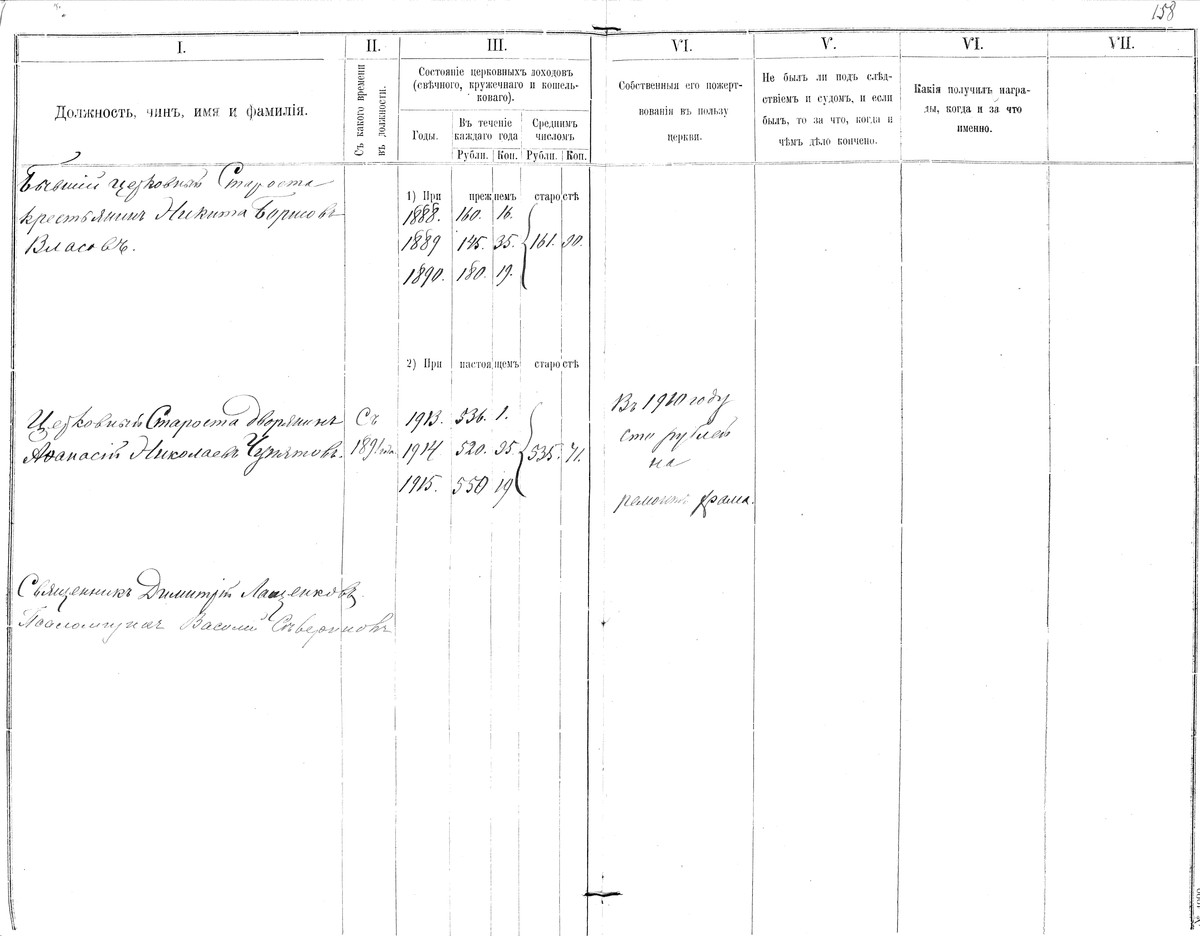 158
I.
II.
III.
VI.
V.
VI.
VII.
Должность, чинъ, имя и фамилія.
Съ какого времени
въ должности.
Состояніе церковныхъ доходовъ
(свѣчного, кружечнаго и кошель-
коваго).
Годы.
Въ теченіе
каждаго года
Среднимъ
числомъ
Рубли. Коп. Рубли. Коп.
Собственныя его пожерт-
вованія въ пользу
церкви.
Не былъ ли подъ слѣд-
ствіемъ и судомъ, и если
былъ, то за что, когда и
чѣмъ дѣло кончено.
Какія получилъ награ-
ды, когда и за что
именно.
Бывшій церковный Староста
крестьянинъ Никита Борисовъ
Власовъ.
1) При прежнемъ старостѣ
1888. 160. 16.
1889 145. 35. 161. 90.
1890. 180. 19.
2) При настоящемъ старостѣ
Церковный Староста дворянинъ
Аѳанасій Николаевъ
Съ
1891 года
1913. 536. 1.
1914 520. 95. 535. 71.
1915. 550 19
Въ 1910 году
сто рублей
на
ремонтъ храма.
Священникъ Димитрій Лащенковъ
Псаломщикъ Василій